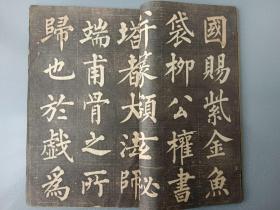 國賜紫金魚
袋柳公權書
塔者大法師
端甫骨之所
歸也於戲為
秘